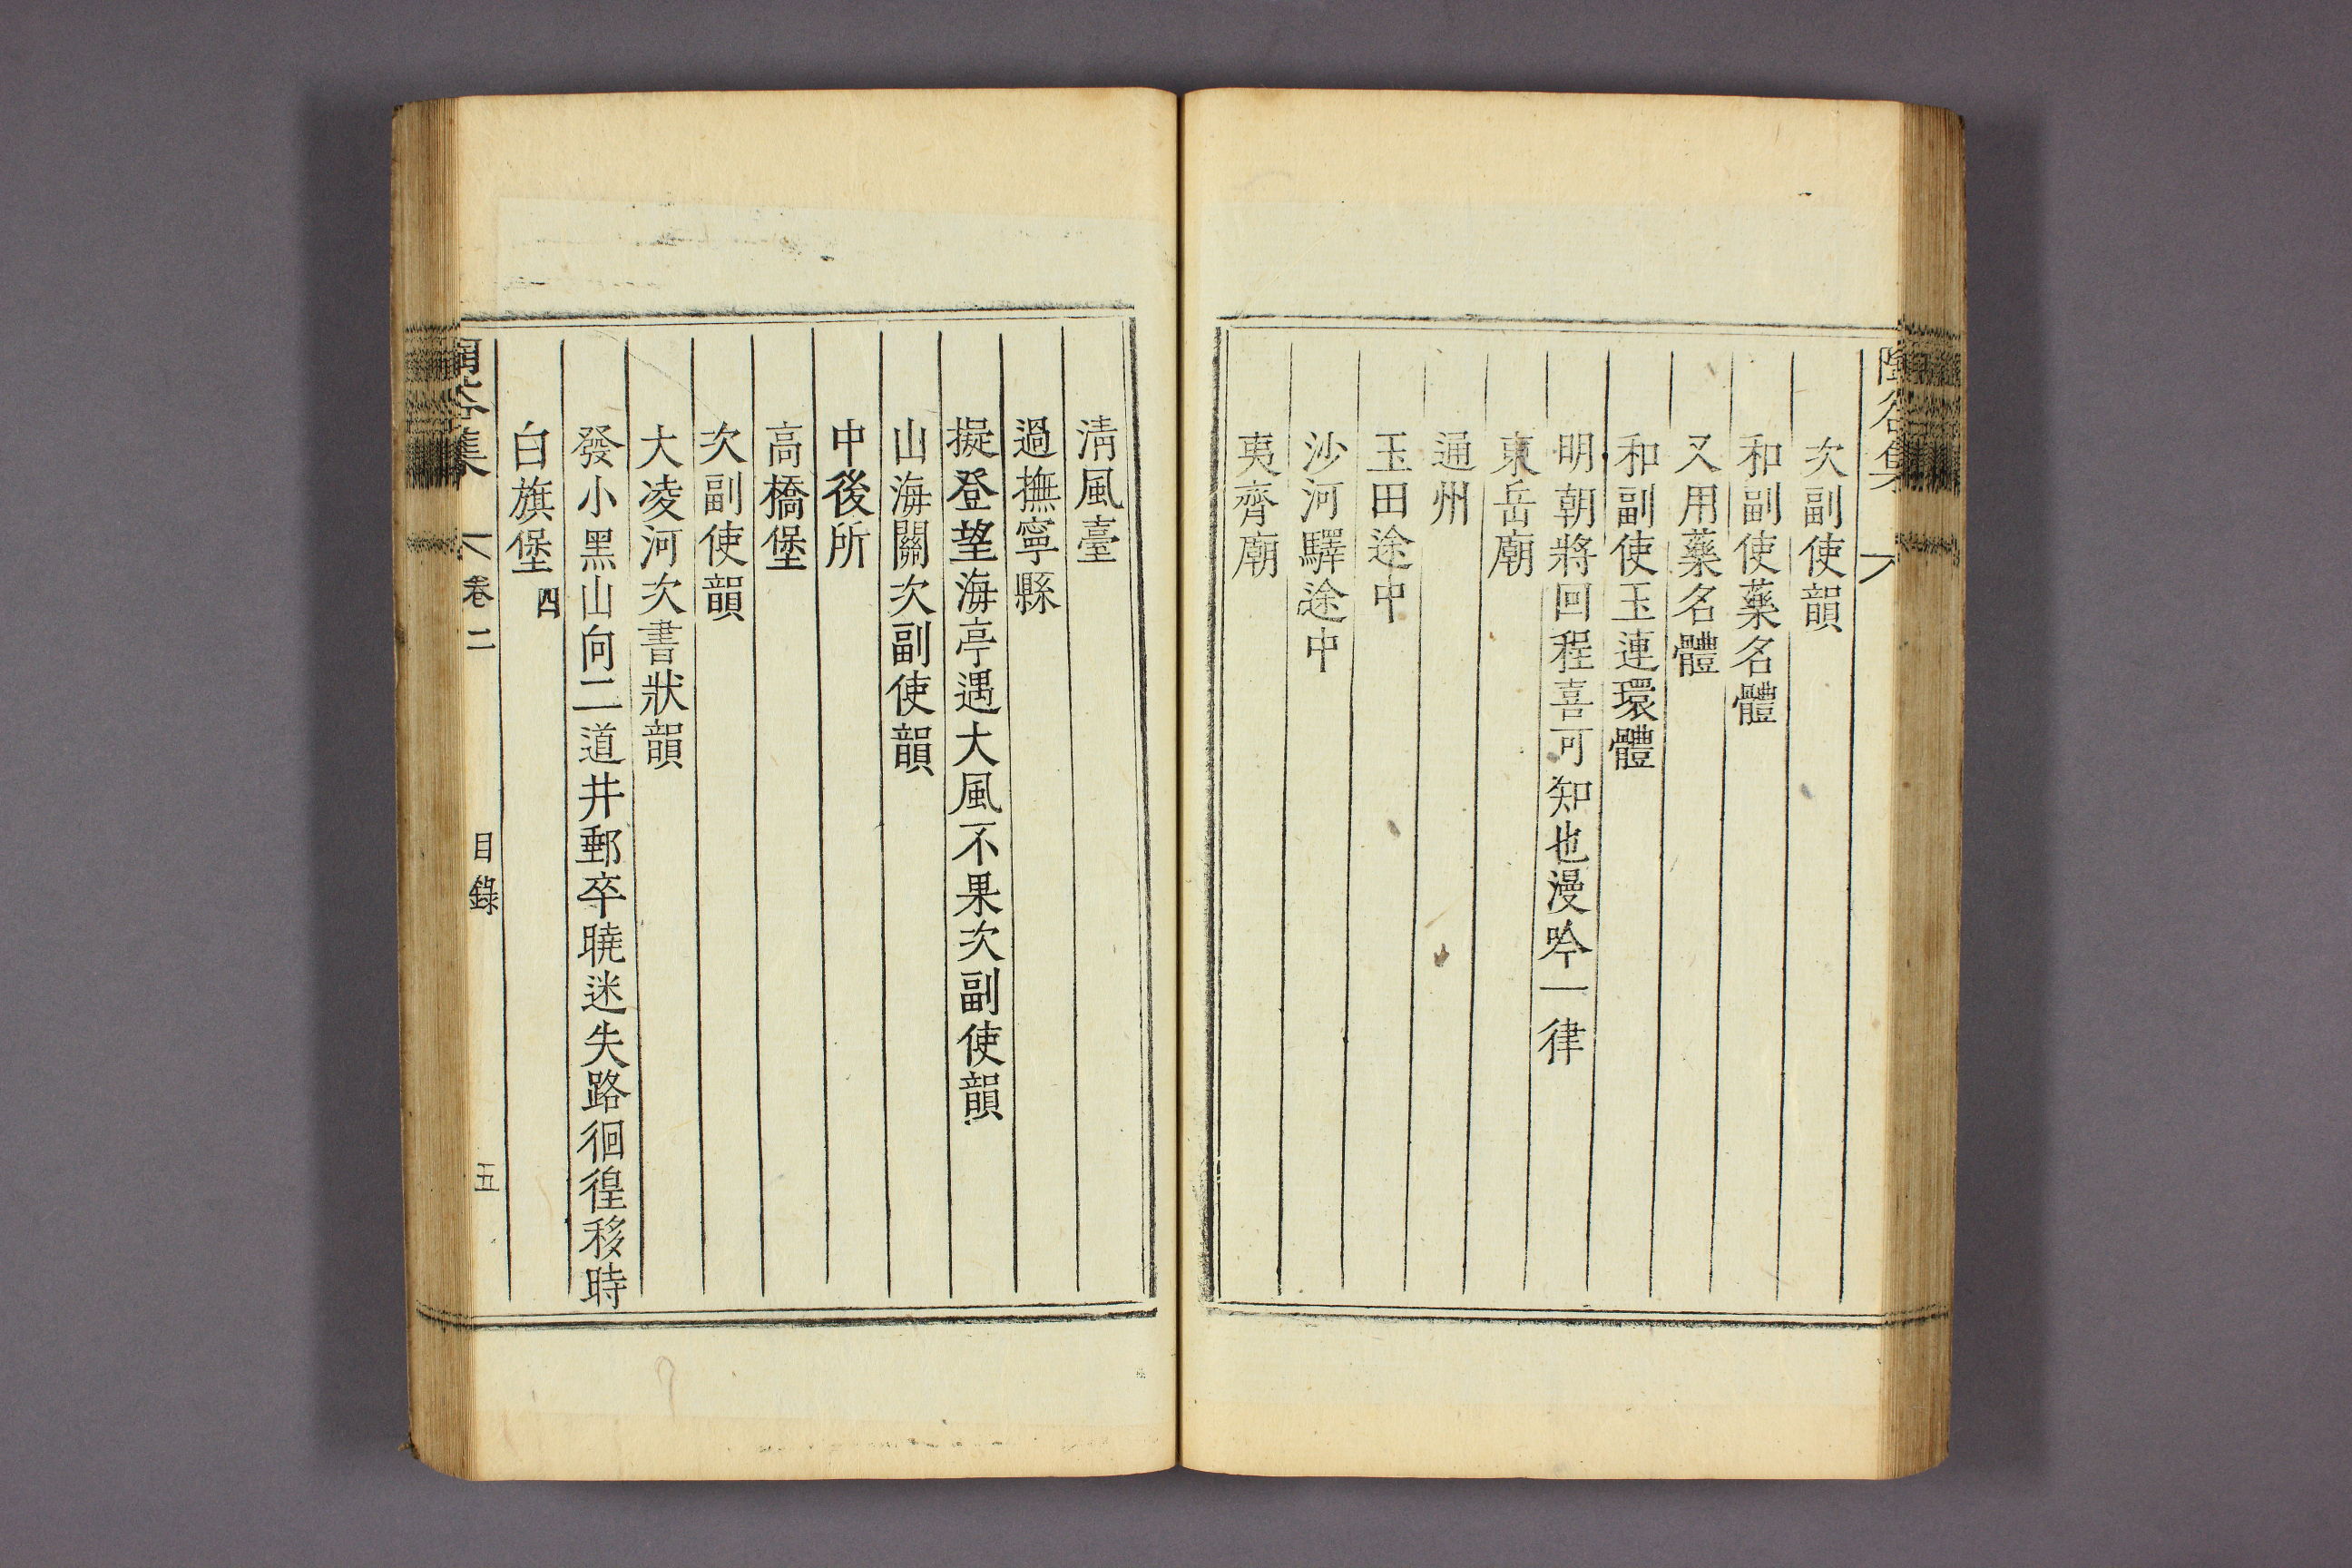 次副使韻
和副使藥名體
又用藥名體
和副使玉連環體
明朝將回程喜可知也漫吟一律
東岳廟
通州
玉田途中
沙河驛途中
夷齊廟
清風臺
過撫寧縣
擬登望海亭遇大風不果次副使韻
山海關次副使韻
中後所
高橋堡
次副使韻
大凌河次書狀韻
發小黑山向二道井郵卒曉迷失路徊徨移時
白旗堡 四
集 卷二 目錄 五